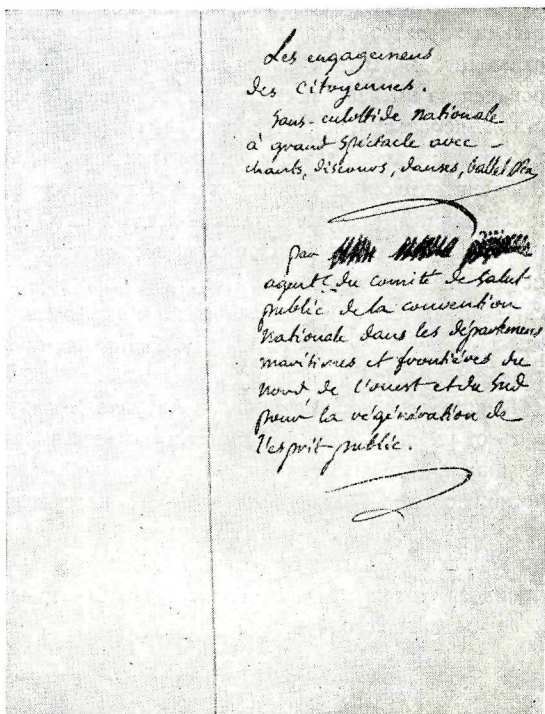 Les engagemens
des Citoyennes.
Sans-culottide nationale
à grand Spéctacle avec
chants, discours, danses, ballet &ca
par
agent du comité de Salut
public de la convention
Nationale dans les départemens
maritimes et frontières du
nord de l'ouest et du Sud
pour la régénération de
l'esprit public.